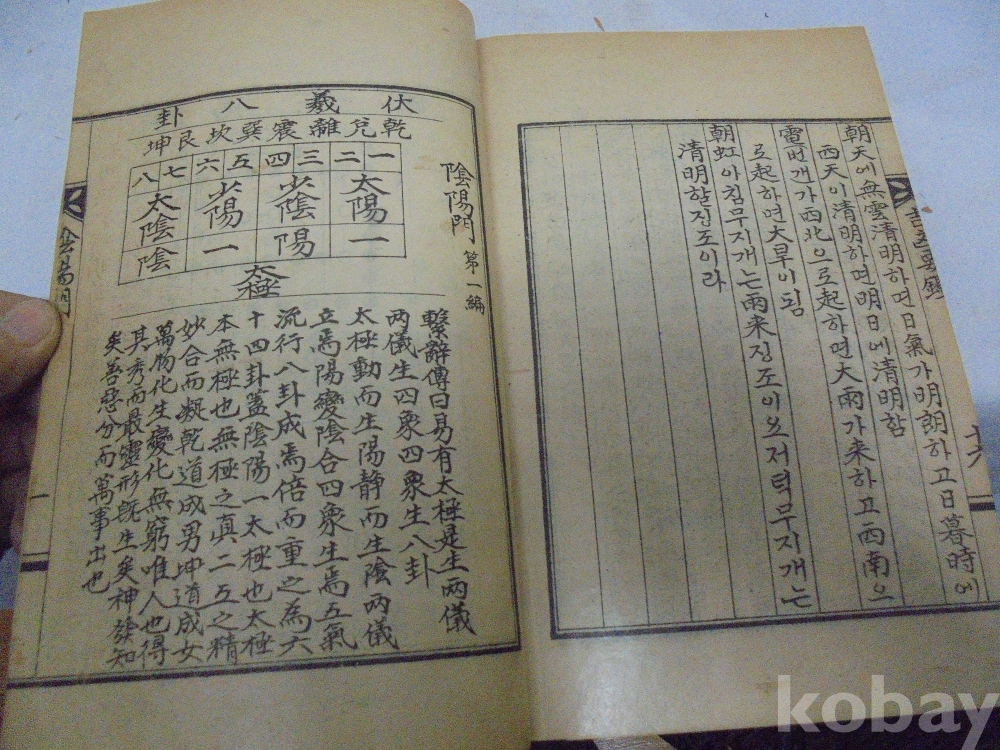 朝天에無雲清明하면日氣가明朗하고日暮時에
西天이清明하면明日에清明함
電번개가西北으로起하면大雨가来하고西南으
로起하면大旱이됨
朝虹아침무지개는雨来징조이오저력무지개는
清明할징조이라
陰陽門 第一編
伏羲八卦
乾兌離震巽坎艮坤
一二三四五六七八
太陽 少陰 少陽 太陰
一 陽 一 陰
太極
繫辭傳曰易有太極是生两儀
两儀生四象四象生八卦
太極動而生陽静而生陰两儀
立焉陽變陰合四象生焉五氣
流行八卦成焉倍而重之為六
十四卦蓋陰陽一太極也太極
本無極也無極之真二五之精
妙合而凝乾道成男坤道成女
萬物化生變化無窮唯人也得
其秀而最靈形既生矣神發知
矣善惡分而萬事出也
陰陽門
一
kobay